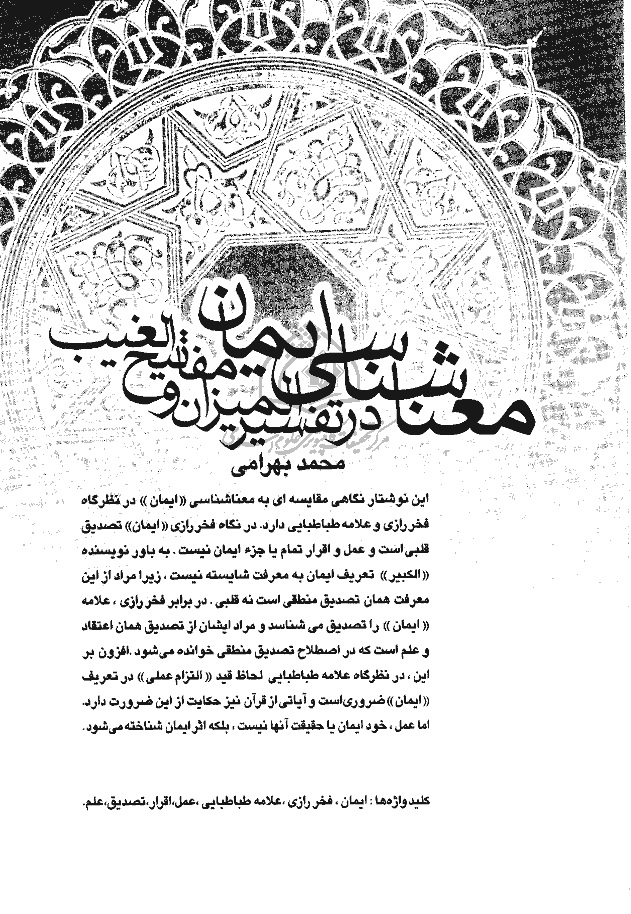 معناشناسی ایمان
در تفسیر المیزان و مفاتیح الغیب
محمد بهرامی
این نوشتار نگاهی مقایسه ای به معناشناسی «ایمان» در نظرگاه
فخر رازی و علامه طباطبایی دارد. در نگاه فخر رازی «ایمان» تصدیق
قلبی است و عمل و اقرار تمام یا جزء ایمان نیست. به باور نویسنده
«الکبیر» تعریف ایمان به معرفت شایسته نیست، زیرا مراد از این
معرفت همان تصدیق منطقی است نه قلبی. در برابر فخر رازی، علامه
«ایمان» را تصدیق می شناسد و مراد ایشان از تصدیق همان اعتقاد
و علم است که در اصطلاح تصدیق منطقی خوانده می‌شود. افزون بر
این، در نظرگاه علامه طباطبایی لحاظ قید «التزام عملی» در تعریف
«ایمان» ضروری است و آیاتی از قرآن نیز حکایت از این ضرورت دارد.
اما عمل، خود ایمان یا حقیقت آنها نیست، بلکه اثر ایمان شناخته می‌شود.
کلید واژه‌ها: ایمان، فخر رازی، علامه طباطبایی، عمل، اقرار، تصدیق، علم.